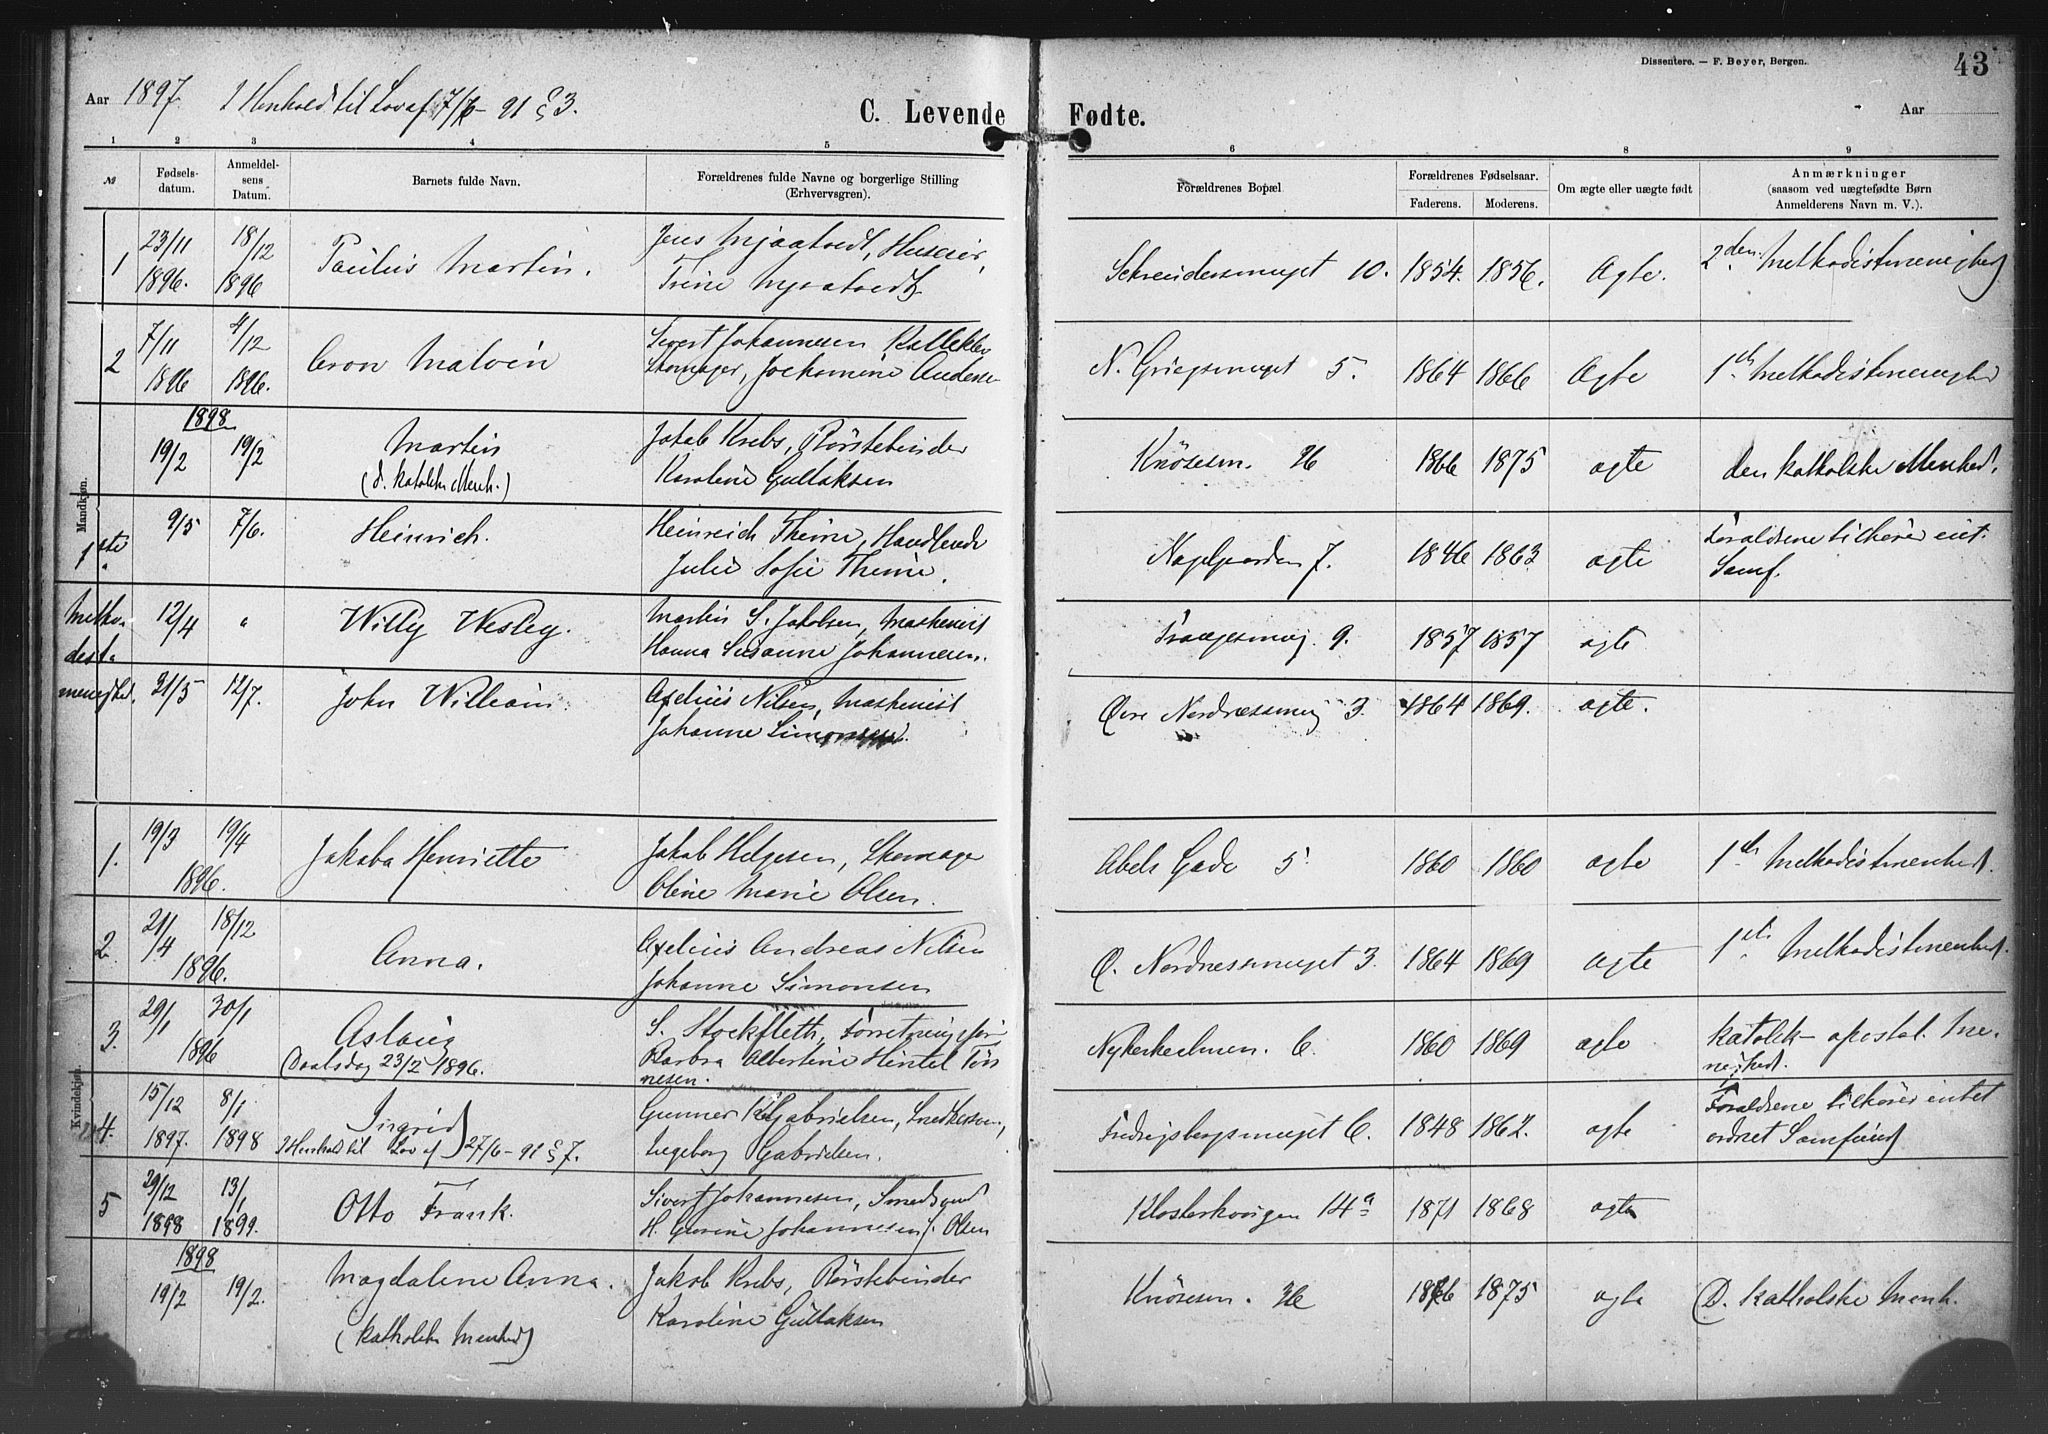 Dissentere. — F. Beyer, Bergen.
43
Aar 1897. I Henhold til Lov af 27/6 - 91 § 3.
C. Levende Fødte.
Aar
1 2 3 4 5 6 7 8 9
№
Fødsels-
datum.
Anmeldel-
sens
Datum.
Barnets fulde Navn.
Forældrenes fulde Navne og borgerlige Stilling
(Erhvervsgren).
Forældrenes Bopæl
Forældrenes Fødselsaar.
Faderens. Moderens.
Om ægte eller uægte født
Anmærkninger
(saasom ved uægtefødte Børn
Anmelderens Navn m. V.).
Mandkjøn.
1 23/11 1896. 18/12 1896 Paulus Martin.
Jens Mjaatvedt, Huseier,
Trine Mjaatvedt
Schreudersmuget 10. 1854. 1856. Ægte. 2den Methodistmenighed
2 7/11 1896 4/12 1896. Malvin
Sivert Johannesen Kalleklev
Skomager, Jochomine Andersen
N. Griegsmuget 5. 1864 1866 Ægte 1ste Methodistmenighed
1898
19/2 19/2 Martin
(d. katolske Menh.)
Jakob Krebs, Børstebinder
Karoline Gullaksen
Knøsesm. 26 1866 1875 ægte den katholske Menhed.
1ste 9/5 7/6. Heinrich.
Heinreich Thime, Handlende
Julie Sofie Thime.
Nagelgaarden 7. 1846 1863 ægte Foraldrene tilhører int.
Samf.
Metho-
dist-
menighed.
12/4 " Willy Wesley.
Martin S. Jakobsen, Maskinist
Hanna Susanne Johannesen.
9. 1857 1857 ægte
21/5 12/7. John William
Axelius Nilsen, Maskinist
Johanne Simonsen.
Øvre Nordnæssmug 3. 1864 1869. ægte.
Kvindekjøn.
1. 19/3 19/4 1896. Jakoba Henriette
Jakob Helgesen, Skomager
Oline Marie Olsen.
Abels Gade 5 1860 1860 ægte 1ste Methodistmenhed.
2. 21/4 18/12 1896. Anna.
Axelius Andreas Nilsen
Johanne Simonsen
Ø. Nordnessmuget 3. 1864 1869 ægte 1ste Methodistmenhed.
3. 29/1 30/1 1896 Aslaug
(Daabsdag 23/2 1896.
S. Stockfleth, Forretningsfør
Barbra Albertine Hintel Tøn
nesen.
Nykirkealmen. 6. 1860 1869 ægte katolsk-apostol. Me-
nighed.
4. 15/12 1897. 8/1 1898 Ingrid
I Henhold til Lov af 27/6 - 91 § 7.
Gunner K Gabrielsen, Snedkersv.,
Ingeborg Gabrielsen.
Fredrigsbergsmuget 6. 1848 1862. ægte Foraldrene tilhører intet
ordnet Samfund
5 29/12 1898 13/1 1899. Otto Frank.
Sivert Johannesen, Smedsvend
H. Gurine Johannesen f. Olsen
Klosterkvigen 14a 1871 1868 ægte
1898
19/2 19/2. Magdalene Anna.
(katholske Menhed)
Jakob Krebs, Børstebinder
Karoline Gullaksen
Knøsesm. 26 1866 1875 ægte (D. katholske Menh.